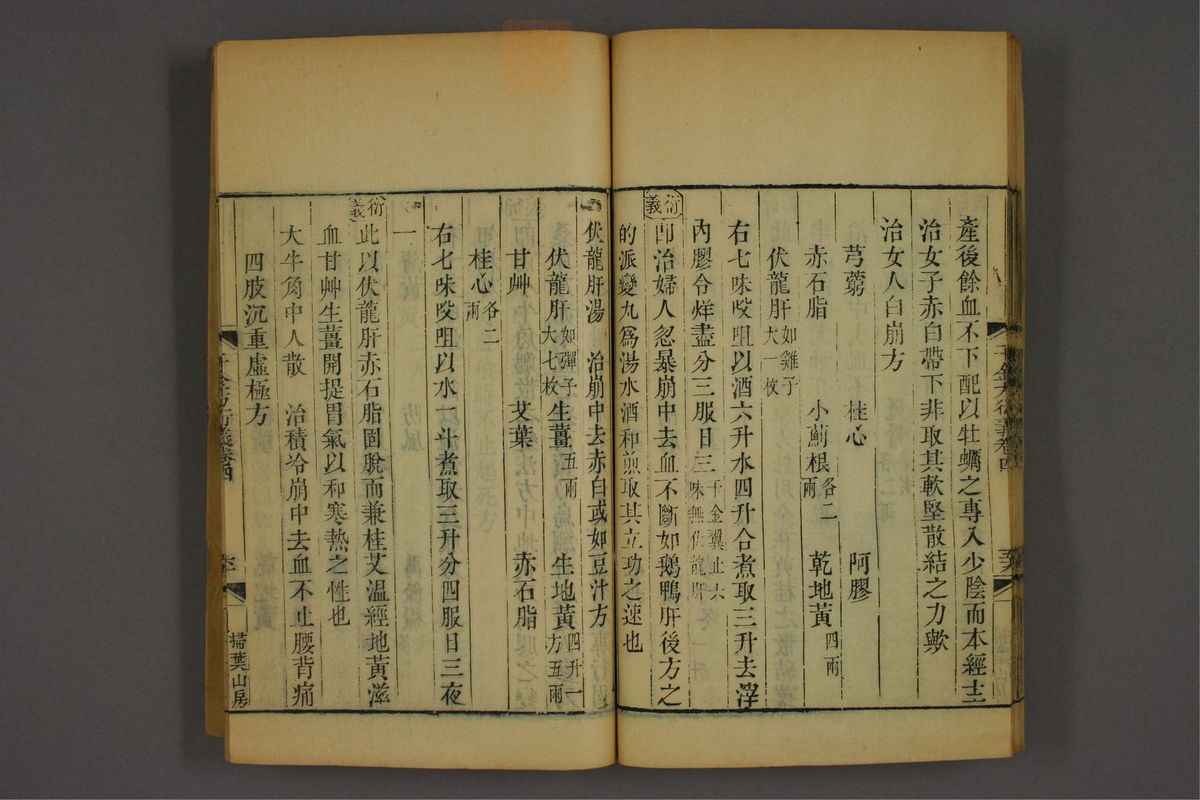 產後餘血不下配以牡蠣之專入少陰而本經主
治女子赤白帶下非取其軟堅散結之力歟
治女人白崩方
芎藭 桂心 阿膠
赤石脂 小薊根各二兩 乾地黃四兩
伏龍肝如雞子大一枚
右七味㕮咀以酒六升水四升合煮取三升去滓
內膠令烊盡分三服日三千金翼止六味無伏龍肝
衍義 卽治婦人忽暴崩中去血不斷如鵝鴨肝後方之
的派變九爲湯水酒和煎取其立功之速也
千金方衍義卷四
伏龍肝湯 治崩中去赤白或如豆汁方
伏龍肝如彈子大七枚 生薑五兩 生地黃四升一方五兩
甘艸 艾葉 赤石脂
桂心各二兩
右七味㕮咀以水一斗煮取三升分四服日三夜
一
衍義 此以伏龍肝赤石脂固脫而兼桂艾溫經地黃滋
血甘艸生薑開提胃氣以和寒熱之性也
大牛角中人散 治積冷崩中去血不止腰背痛
四肢沉重虛極方
千金方衍義卷四
掃葉山房